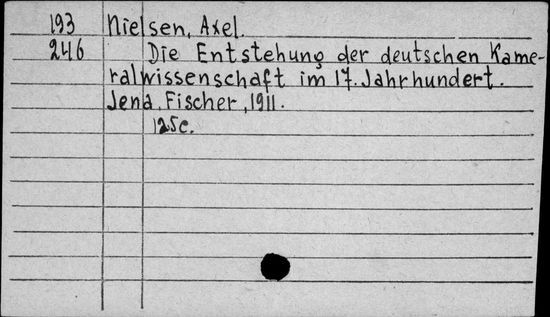 193 Nielsen, Axel.
246 Die Entstehung der deutschen Kame-
ralwissenschaft im 17. Jahrhundert.
Jena, Fischer, 1911.
125c.